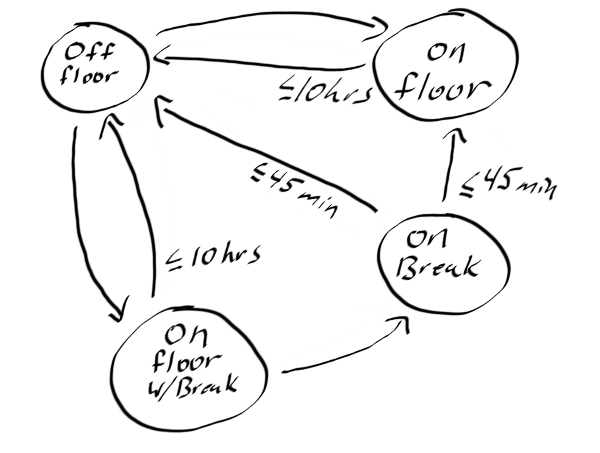 Off
floor
On
floor
≤10hrs
≤45min
≤45min
On
Break
≤10hrs
On
floor
w/Break